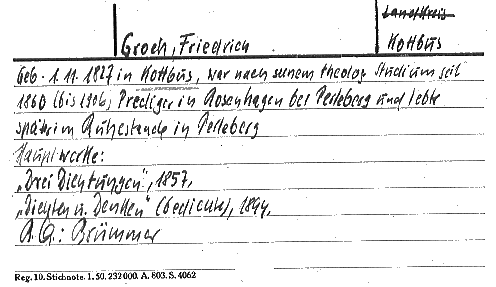 Landkreis
Groch, Friedrich
Kottbus
Geb. 1.11.1827 in Kottbus, war nach seinem theolog. Studium seit
1860 (bis 1906) Prediger in Rosenhagen bei Perleberg und lebte
später im Ruhestande in Perleberg
Hauptwerke:
„Drei Dichtungen", 1857,
„Dichten u. Denken" (Gedichte), 1894.
A.Q.: Brümmer
Reg. 10. Stichnote. 1. 50. 232 000. A. 803. S. 4062